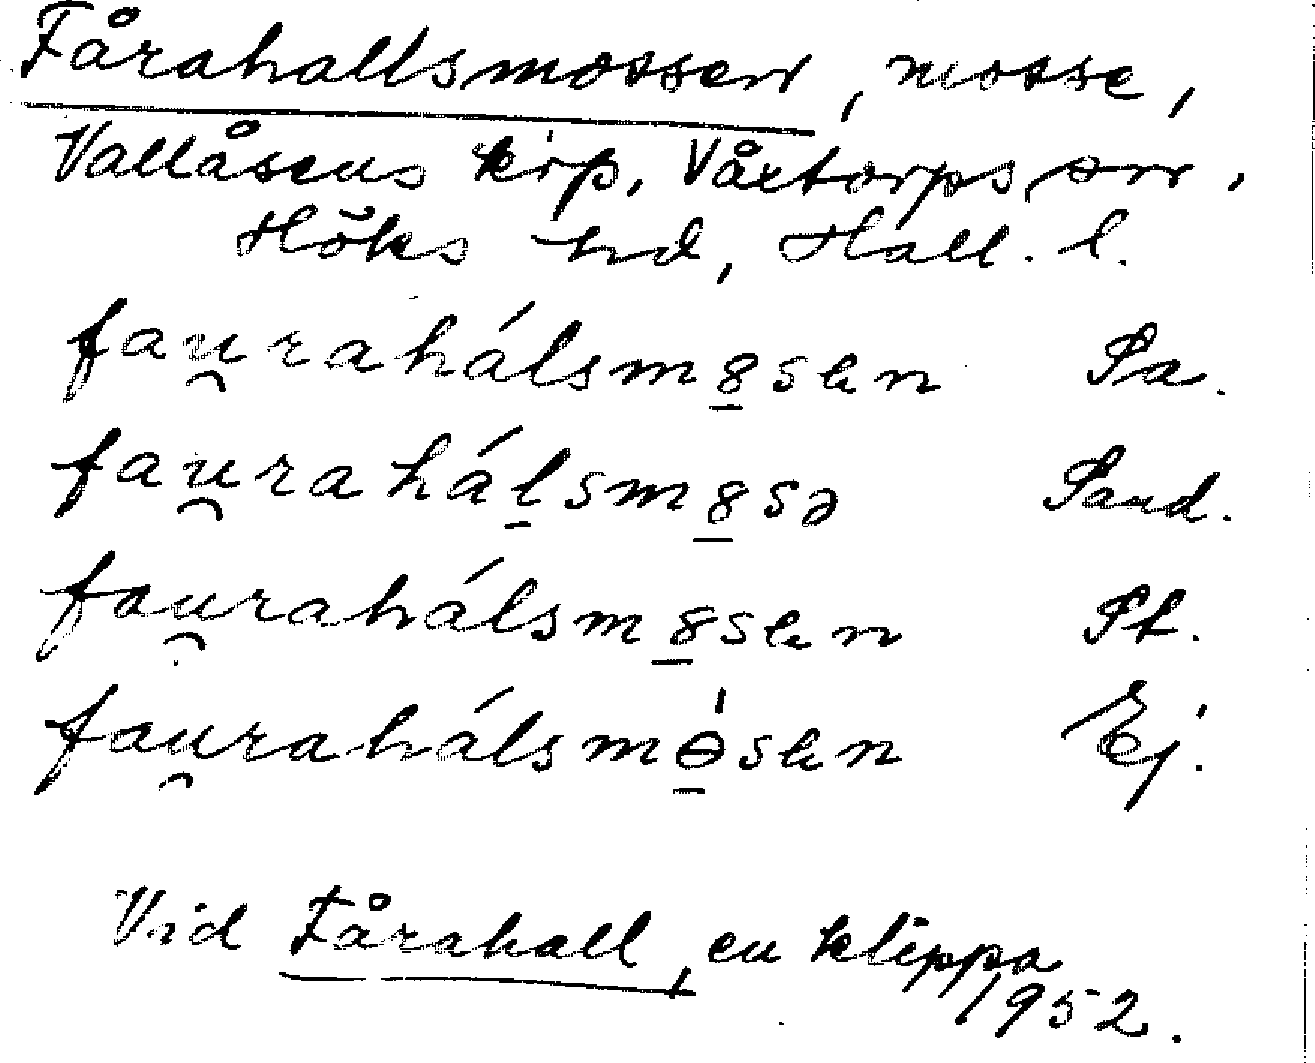 Fårahallsmossen, mosse,
Vallåsens krp, Våxtorps sn.
Höks hd, Hall. l.
fau̯rahálsmo̲sen Sa.
fau̯rahál̲smo̲sə Sand.
fau̯rahálsmo̲sen St.
fau̯rahálsmɵ̲́sen Ej.
Vid Fårahall, en klippa
1952.